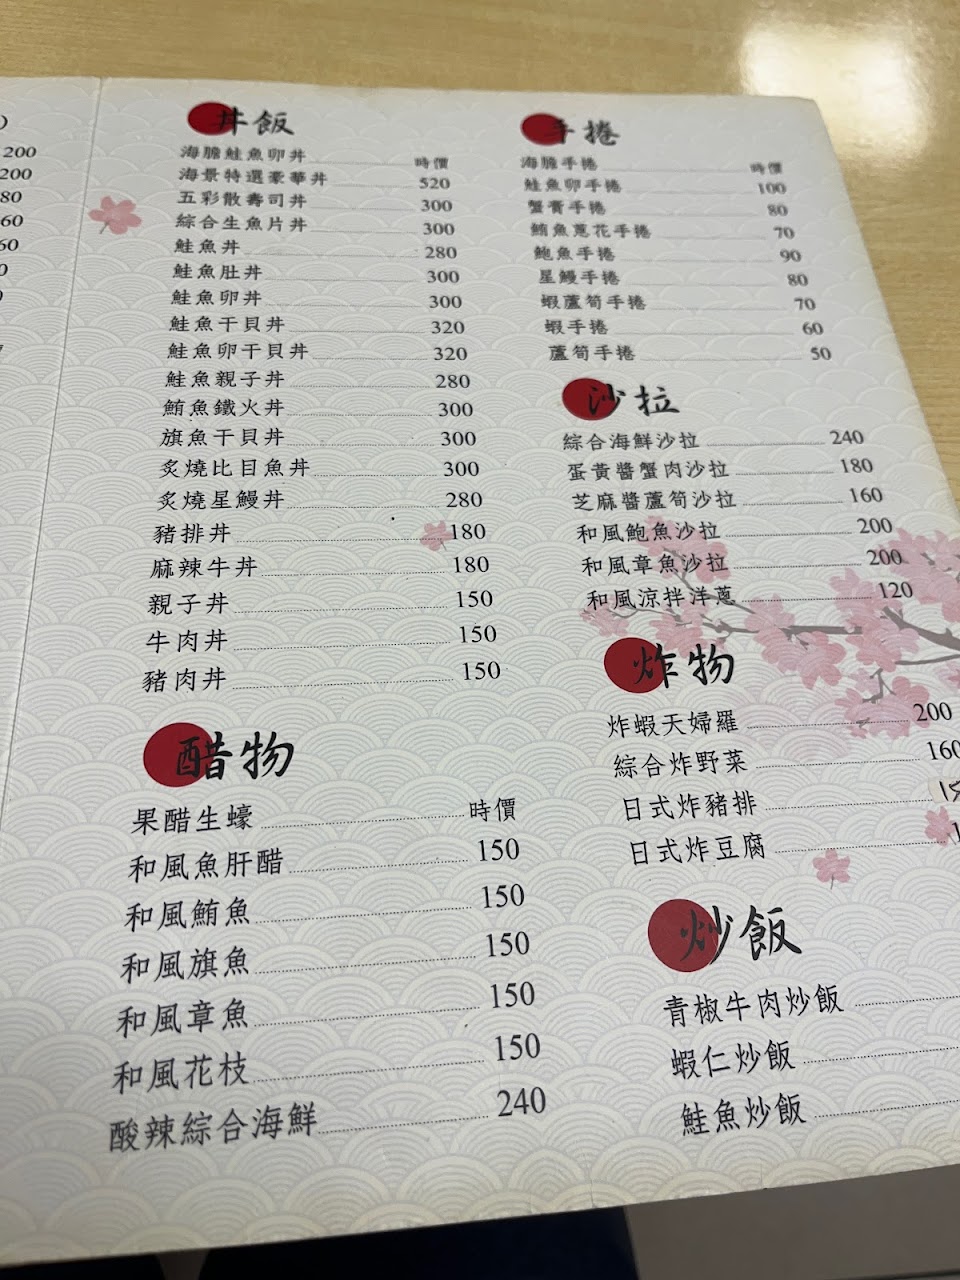 200
200
80
60
60
丼飯
海膽鮭魚卵丼 時價
海景特選豪華丼 520
五彩散壽司丼 300
綜合生魚片丼 300
鮭魚丼 280
鮭魚肚丼 300
鮭魚卵丼 300
鮭魚干貝丼 320
鮭魚卵干貝丼 320
鮭魚親子丼 280
鮪魚鐵火丼 300
旗魚干貝丼 300
炙燒比目魚丼 300
炙燒星鰻丼 280
豬排丼 180
麻辣牛丼 180
親子丼 150
牛肉丼 150
豬肉丼 150
醋物
果醋生蠔 時價
和風魚肝醋 150
和風鮪魚 150
和風旗魚 150
和風章魚 150
和風花枝 150
酸辣綜合海鮮 240
手捲
海膽手捲 時價
鮭魚卵手捲 100
蟹膏手捲 80
鮪魚蔥花手捲 70
鮑魚手捲 90
星鰻手捲 80
蝦蘆筍手捲 70
蝦手捲 60
蘆筍手捲 50
沙拉
綜合海鮮沙拉 240
蛋黃醬蟹肉沙拉 180
芝麻醬蘆筍沙拉 160
和風鮑魚沙拉 200
和風章魚沙拉 200
和風涼拌洋蔥 120
炸物
炸蝦天婦羅 200
綜合炸野菜 160
日式炸豬排
日式炸豆腐
炒飯
青椒牛肉炒飯
蝦仁炒飯
鮭魚炒飯